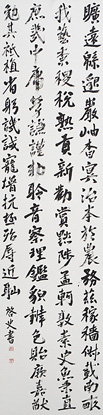 曠遠緜邈巖岫杳冥治本於農務茲稼穡俶載南畝
我藝黍稷稅熟貢新勸賞黜陟孟軻敦素史魚秉直
庶幾中庸勞謙謹敕聆音察理鑑貌辨色貽厥嘉猷
勉其祗植省躬譏誡寵增抗極殆辱近恥 書